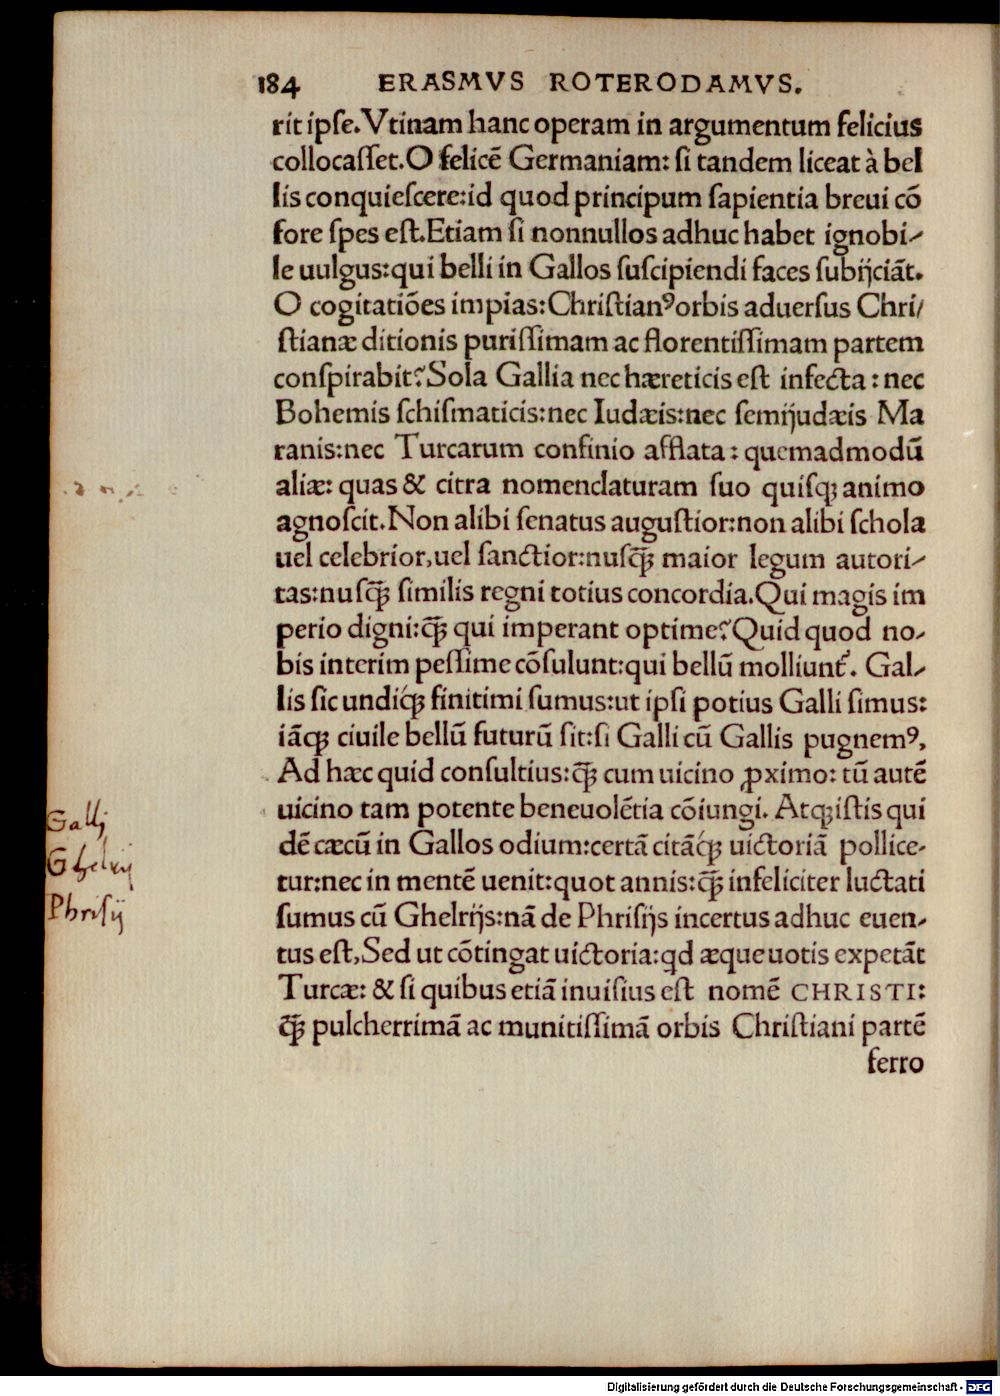 184 ERASMVS ROTERODAMVS.
rit ipſe. Vtinam hanc operam in argumentum felicius
collocaſſet. O felicē Germaniam: ſi tandem liceat à bel
lis conquieſcere: id quod principum ſapientia breui cō
fore ſpes eſt. Etiam ſi nonnullos adhuc habet ignobi-
le uulgus: qui belli in Gallos ſuſcipiendi faces ſubijciāt.
O cogitatiōes impias: Chriſtianꝰ orbis aduerſus Chri/
ſtianæ ditionis puriſſimam ac florentiſſimam partem
conſpirabit? Sola Gallia nec hæreticis eſt infecta: nec
Bohemis ſchiſmaticis: nec Iudæis: nec ſemijudæis Ma
ranis: nec Turcarum confinio afflata: quemadmodū
aliæ: quas & citra nomenclaturam ſuo quiſqꝫ animo
agnoſcit. Non alibi ſenatus auguſtior: non alibi ſchola
uel celebrior, uel ſanctior: nuſq̄ꝫ maior legum autori-
tas: nuſq̄ꝫ ſimilis regni totius concordia. Qui magis im
perio digni: q̄ꝫ qui imperant optime? Quid quod no-
bis interim peſſime cōſulunt: qui bellū moliunt᷑. Gal-
lis ſic undiqꝫ́ finitimi ſumus: ut ipſi potius Galli ſimus:
iāqꝫ ciuile bellū futurū ſit: ſi Galli cū Gallis pugnemꝰ,
Ad hæc quid conſultius: q̄ꝫ cum uicino ꝓximo: tū autē
uicino tam potente beneuolētia cōiungi. Atqꝫ iſtis qui
dē cæcū in Gallos odium: certā citāqꝫ́ uictoriā pollice-
tur: nec in mentē uenit: quot annis: q̄ꝫ infeliciter luctati
ſumus cū Ghelrijs: nā de Phriſijs incertus adhuc euen-
tus eſt, Sed ut cōtingat uictoria: qd æque uotis expetāt
Turcæ: & ſi quibus etiā inuiſius eſt nomē CHRISTI:
q̄ꝫ pulcherrimā ac munitiſſimā orbis Chriſtiani partē
ferro
Gallj
Ghelrij
Phriſij
Digitalisierung gefördert durch die Deutsche Forschungsgemeinschaft - DFG